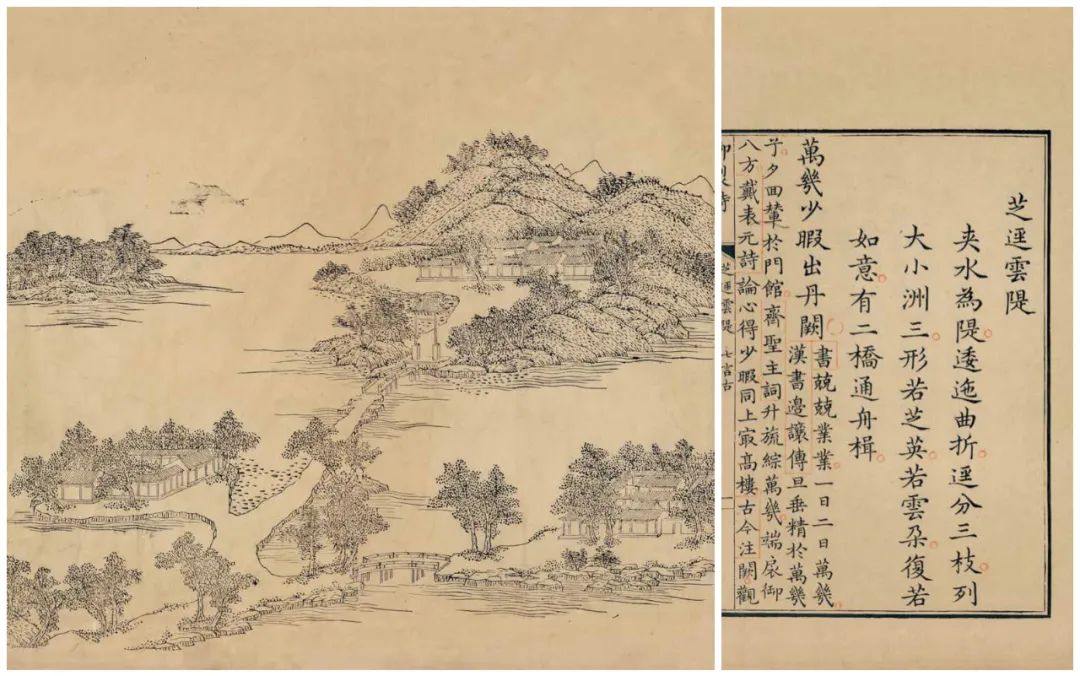 芝逕雲隄
夾水為隄逶迤曲折逕分三枝列
大小洲三形若芝英若雲朶復若
如意有二橋通舟楫
萬幾少暇出丹闕
書兢兢業業一日二日萬幾
漢書邊讓傳旦垂精於萬幾
兮夕回輦於門館齋聖主詞升旒綜萬幾端扆御
八方戴表元詩論心得少暇同上㝡高樓古今注闕觀
御製詩
芝逕雲隄 七言古
一